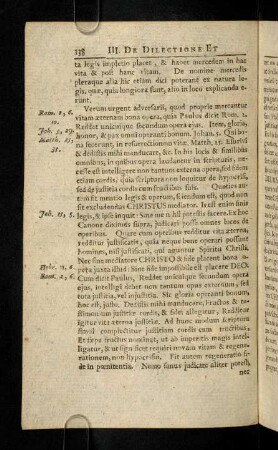 138 III. DE DILECTIONE ET
ta legis impletio placet, & habet mercedem in hac
vita & post hanc vitam. De nomine mercedis
pleraque alia hic etiam dici poterant ex natura legis,
quæ, quia longiora sunt, alio in loco explicanda
erunt.
Verum urgent adversarii, quod propriè mercantur
vitam æternam bona opera, quia Paulus dicit Rom. 2.
Rom. 2, 6.
10.
Reddet unicuique secundum opera ejus. Item, gloria,
honor, & pax omni operanti bonum. Johan. 5. Qui bona
Joh. 5, 29.
Matth. 25,
35.
fecerunt, in resurrectionem vitæ. Matth. 25. Esurivi
& dedistis mihi manducare, &c. In his locis & similibus
omnibus, in quibus opera laudantur in scripturis, necesse
est intelligere non tantum externa opera, sed fidem
etiam cordis, quia scriptura non loquitur de hypocrisi,
sed de justitia cordis cum fructibus suis. Quoties autem
fit mentio legis & operum, sciendum est, quod non
sit excludendus CHRISTUS mediator. Is est enim finis
legis, & ipse inquit: Sine me nihil potestis facere. Ex hoc
Joh. 15, 5.
Canone diximus supra, judicari posse omnes locos de
operibus. Quare cum operibus redditur vita æterna,
redditur justificatis, quia neque bene operari possunt
homines, nisi justificati, qui aguntur Spiritu
Nec sine mediatore CHRISTO & fide placent bona opera
juxta illud: Sine fide impossibile est placere DEO.
Hebr. 11, 6.
Rom. 2, 6.
Cum dicit Paulus, Reddet unicuique secundum opera
ejus, intelligi debet non tantum opus externum, sed
tota justitia, vel injustitia. Sic gloria operanti bonum,
hoc est, justo. Dedistis mihi manducare, fructus & testimonium
justitiæ cordis, & fidei allegatur, Redditur
igitur vita æterna justitiæ. Ad hunc modum scriptura
simul complectitur justitiam cordis cum fructibus,
Et sæpe fructus nominat, ut ab imperitis magis intelligatur,
& ut significet requiri novam vitam & regenerationem,
non hypocrisin. Fit autem regeneratio fide
in pœnitentia. Nemo sanus judicare aliter potest,
nec